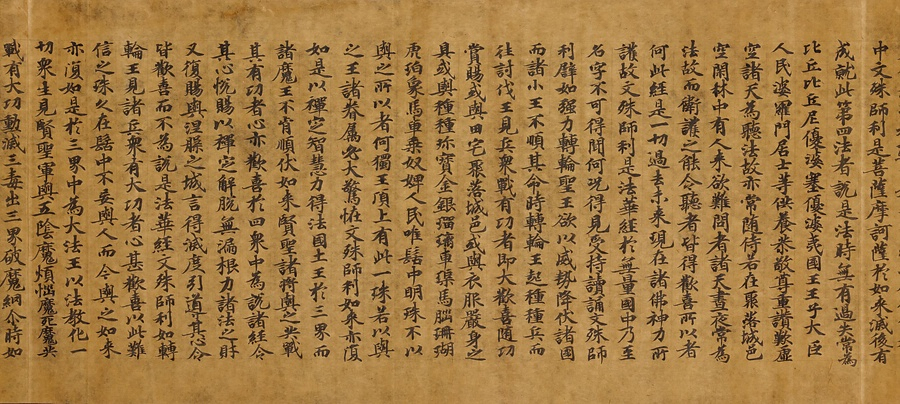 中文殊師利是菩薩摩訶薩於如來滅後有
成就此第四法者說是法時無有過失常為
比丘比丘尼優婆塞優婆夷國王王子大臣
人民婆羅門居士等供養恭敬尊重讚歎虛
空諸天為聽法故亦常隨侍若在聚落城邑
空閑林中有人來欲難問者諸天晝夜常為
法故而衛護之能令聽者皆得歡喜所以者
何此經是一切過去未來現在諸佛神力所
護故文殊師利是法華經於無量國中乃至
名字不可得聞何況得見受持讀誦文殊師
利譬如强力轉輪聖王欲以威勢降伏諸國
而諸小王不順其命時轉輪王起種種兵而
往討伐王見兵衆戰有功者即大歡喜隨功
賞賜或與田宅聚落城邑或與衣服嚴身之
具或與種種珎寶金銀瑠璃車璖馬腦珊瑚
虎珀象馬車乘奴婢人民唯髻中明珠不以
與之所以者何獨王頂上有此一珠若以與
之王諸眷屬必大驚恠文殊師利如來亦復
如是以禪定智慧力得法國土王於三界而
諸魔王不肯順伏如來賢聖諸將與之共戰
其有功者心亦歡喜於四衆中為說諸經令
其心悅賜以禪定解脫無漏根力諸法之財
又復賜與涅槃之城言得滅度引道其心令
皆歡喜而不為說是法華經文殊師利如轉
輪王見諸兵衆有大功者心甚歡喜以此難
信之珠久在髻中不妄與人而今與之如來
亦復如是於三界中為大法王以法教化一
切衆生見賢聖軍與五陰魔煩惱魔死魔共
戰有大功勳滅三毒出三界破魔網尒時如